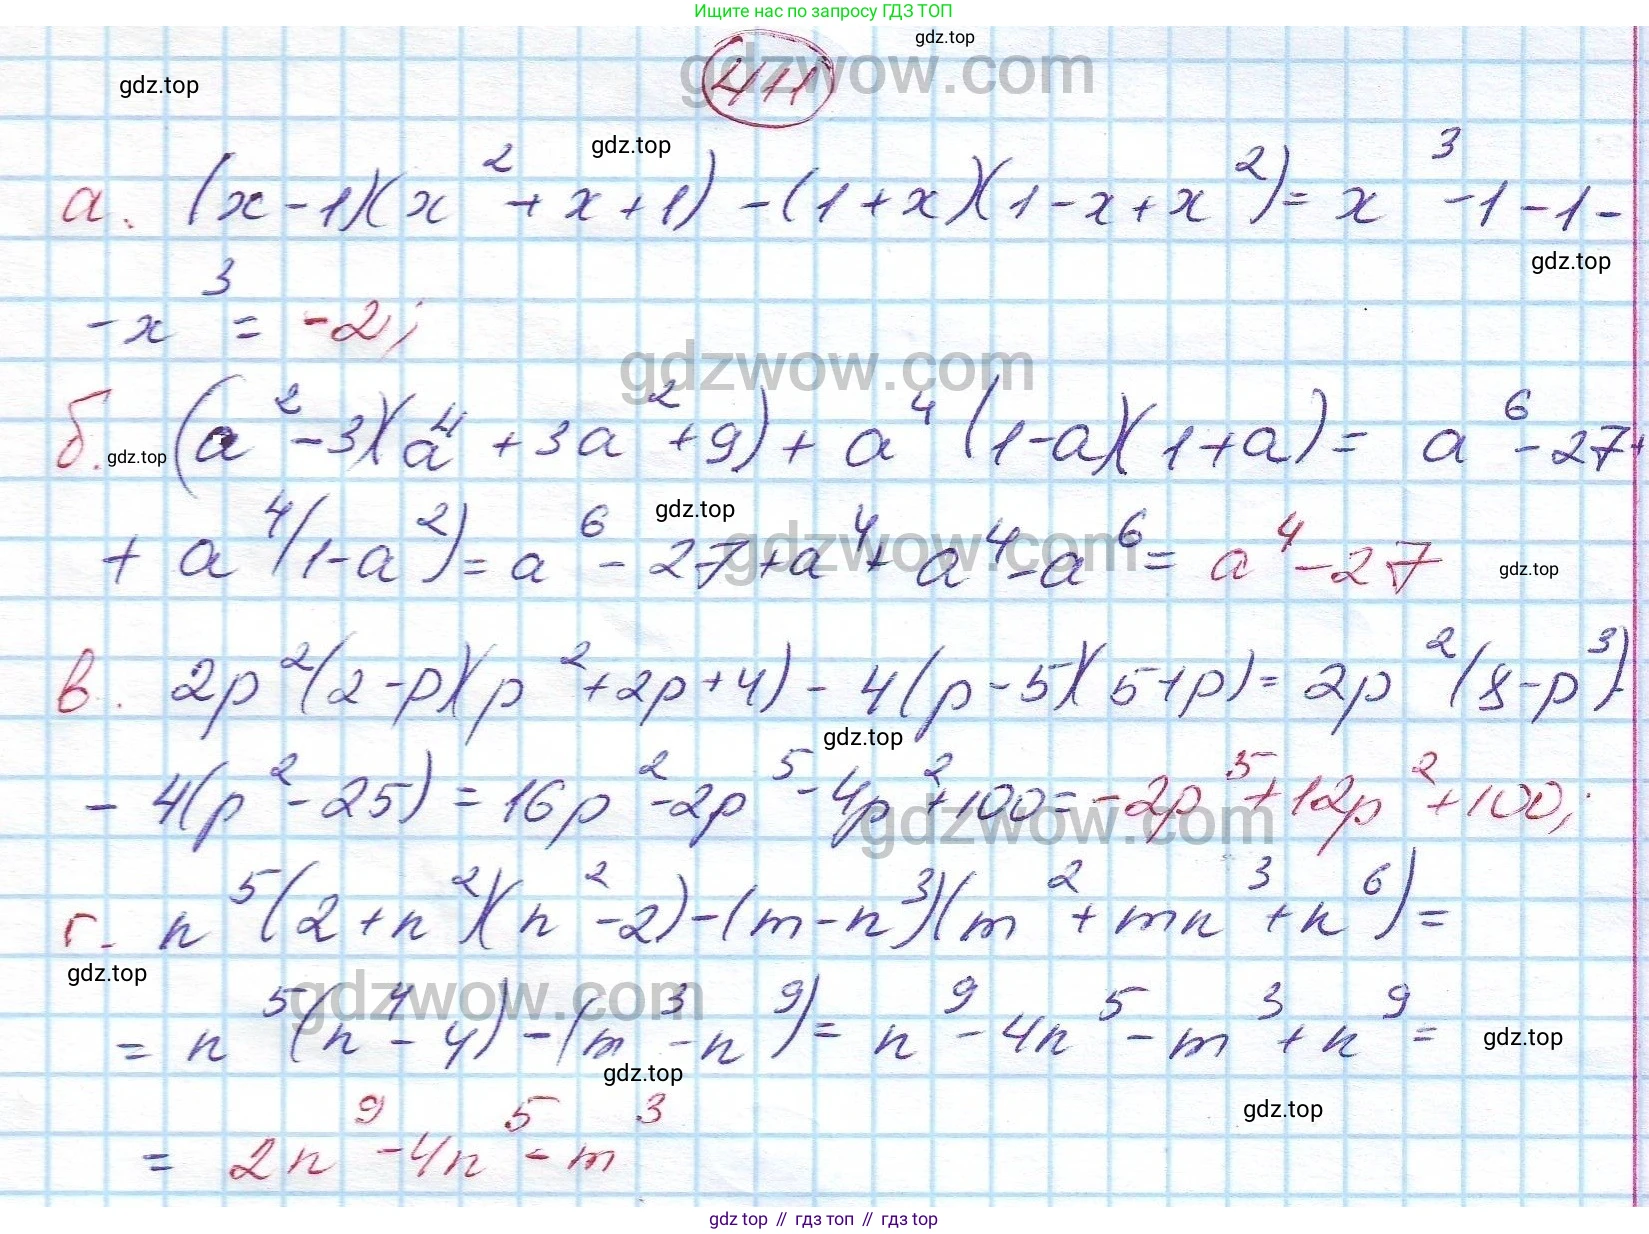 Ищите нас по запросу ГДЗ ТОП
gdz.top
gdzwow.com
gdz.top
411
gdz.top
а. (x-1)(x²+x+1)-(1+x)(1-x+x²)=x³-1-1-
gdz.top
-x³=-2;
gdzwow.com
б. (a²-3)(a⁴+3a²+9)+a⁴(1-a)(1+a)=a⁶-27+
gdz.top
gdz.top
+a⁴(1-a²)=a⁶-27+a⁴+a⁴-a⁶=a⁴-27
gdzwow.com
gdz.top
в. 2p²(2-p)(p²+2p+4)-4(p-5)(5+p)=2p²(8-p³)-
gdz.top
-4(p²-25)=16p²-2p⁵-4p²+100=-2p⁵+12p²+100;
gdzwow.com
г. n⁵(2+n²)(n²-2)-(m-n³)(m²+mn³+n⁶)=
gdz.top
gdzwow.com
=n⁵(n⁴-4)-(m³-n⁹)=n⁹-4n⁵-m³+n⁹=
gdz.top
gdz.top
gdz.top
=2n⁹-4n⁵-m³
gdz top // гдз топ // gdz top